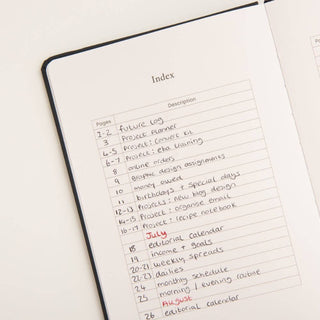 Index
Pages Description
1-2 future log
3 Project Planner
4-5 Project: Convert kit
6-7 Project: eba training
8 online orders
9 Graphic design assignments
10 money owed
11 birthdays + special days
12-13 Projects: new blog design
14-15 Project: organise email
16-17 Project: recipe notebook
July
18 editorial calendar
19 income + goals
20-21 weekly spreads
22-23 dailies
24 monthly schedule
25 morning / evening routine
August
26 editorial calendar